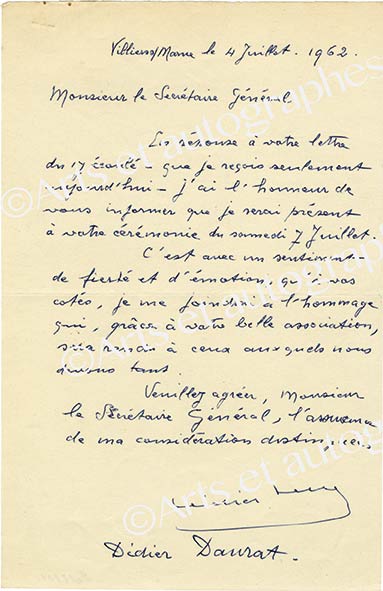 Villiers s/Marne le 4 Juillet. 1962.
Monsieur le Secrétaire Général
En réponse à votre lettre
du 17 écoulé - que je reçois seulement
aujourd'hui - j'ai l'honneur de
vous informer que je serai présent
à votre cérémonie du samedi 7 Juillet.
C'est avec un sentiment
de fierté et d'émotion, qu'à vos
cotés, je me joindrai à l'hommage
qui, grâce à votre belle association,
sera rendu à ceux auxquels nous
devons tant.
Veuillez agréer, Monsieur
le Secrétaire Général, l'assurance
de ma considération distinguée.
Didier Daurat.
©Arts et autographes
©Arts et autographes
©Arts et autographes
©Arts et autographes